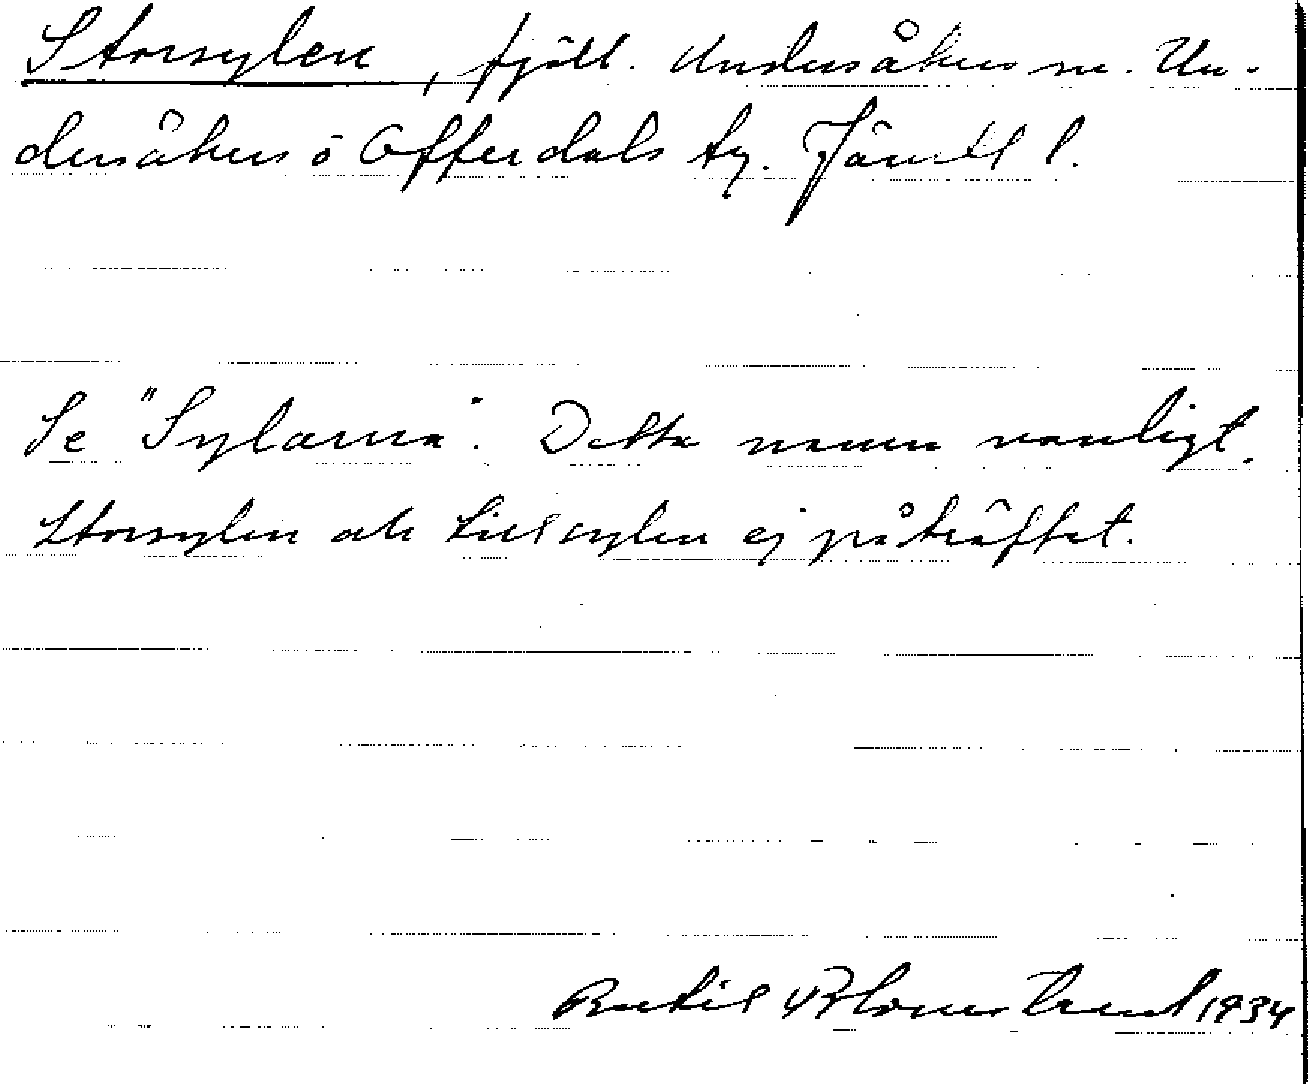 Storsylen, fjäll. Undersåkers sn. Un-
dersåkers o Offerdals tg. Jämtl l.
Se "Sylarna". Detta namn vanligt.
Storsylen och Lillsylen ej påträffat.
Bertil Blomstrand 1934